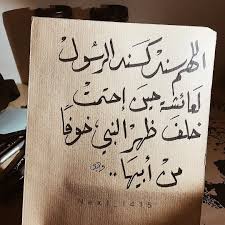 اللهم سند كسند الرسول
لعائشة حين احتمت
خلف ظهر النبي خوفا
من أبيها..
Next_1415